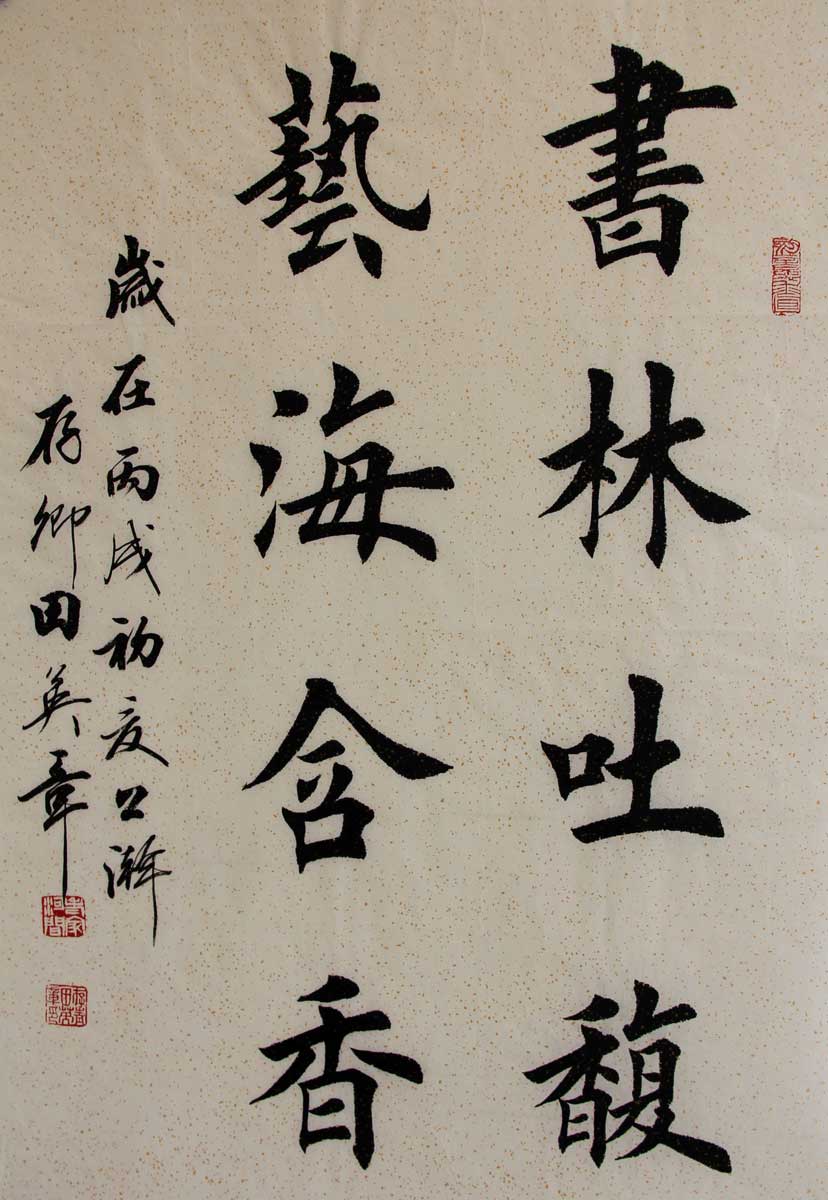 書林吐馥
藝海含香
歲在丙戌初夏公瀚
存卿田英章